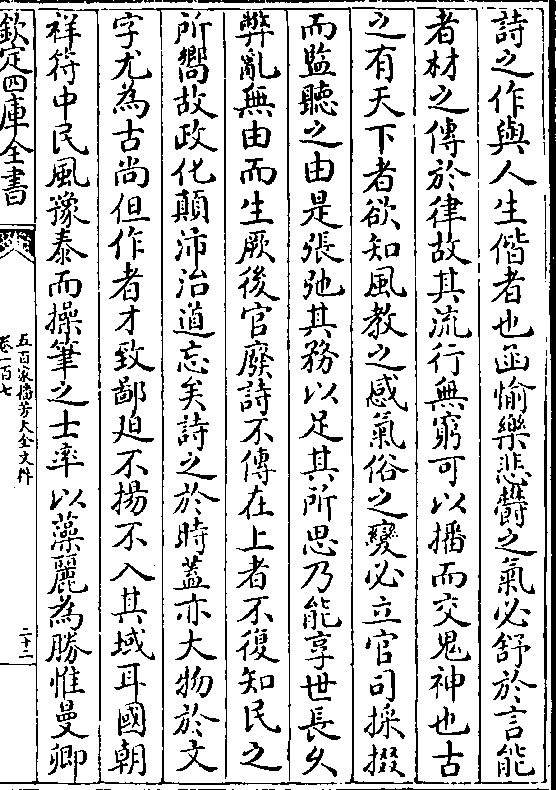 詩之作與人生偕者也函愉樂悲鬱之氣必舒於言能
者材之傳於律故其流行無窮可以播而交鬼神也古
之有天下者欲知風教之感氣俗之變必立官司採掇
而監聽之由是張弛其務以足其所思乃能享世長久
弊亂無由而生厥後官廢詩不傳在上者不復知民之
所嚮故政化顛沛治道忘矣詩之於時蓋亦大物於文
字尤為古尚但作者才致鄙迫不揚不入其域耳國朝
祥符中民風豫泰而操筆之士率以藻麗為勝惟曼卿
欽定四庫全書
五百家播芳大全文粹
卷一百七
二十二